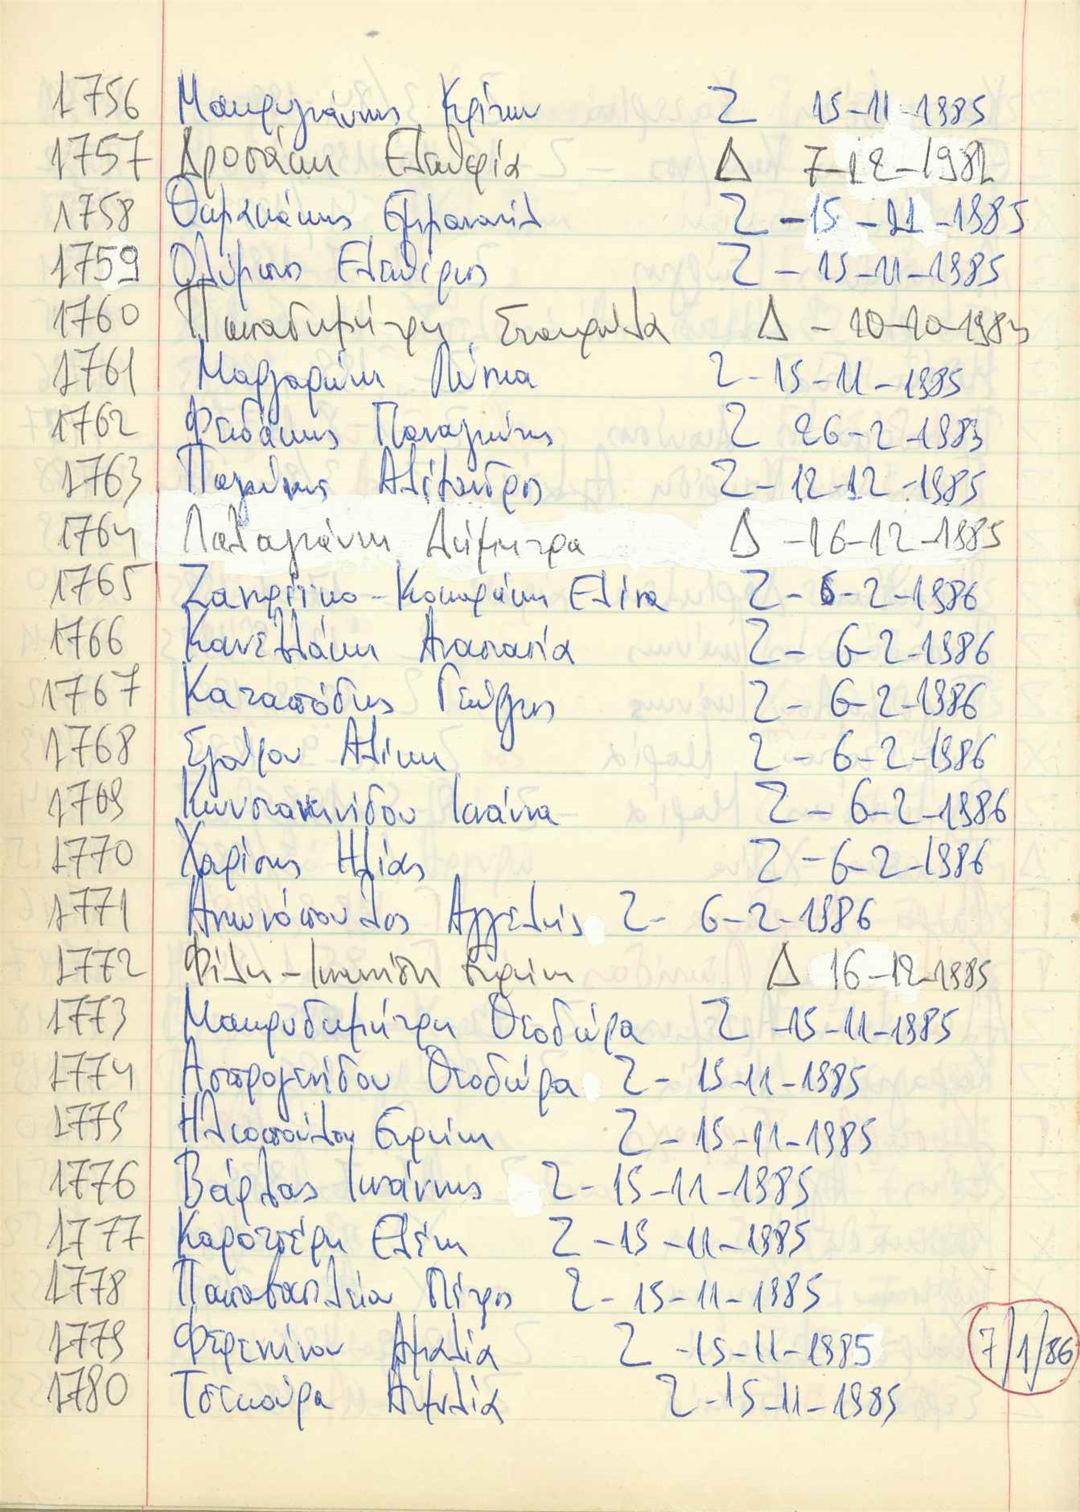 1756 Μακρυγιάννης Κρίτων Ζ 15-11-1985
1757 Δροσάκη Ελευθερία Δ 7-12-1982
1758 Θωμαδάκης Εμμανουήλ Ζ -15-11-1985
1759 Ολύμπιος Ελευθέριος Ζ - 15-11-1985
1760 Παπαδημήτρη Σταυρούλα Δ - 10-10-1983
1761 Μαργαρώνη Πόπια Ζ - 15-11-1985
1762 Φειδάκης Παναγιώτης Ζ 26-2-1983
1763 Παγώνης Αλέξανδρος Ζ-12-12-1985
1764 Παλαγιάννη Δήμητρα Δ -16-12-1985
1765 Ζαπρίτικο-Κοκοράκη Ελένα Ζ- 6-2-1986
1766 Κανελλάκη Αναστασία Ζ- 6-2-1986
1767 Καταπόδης Γεώργιος Ζ- 6-2-1986
1768 Σγούρου Αλίκη Ζ - 6-2-1986
1769 Κωνσταντινίδου Ιωάννα Ζ - 6-2-1986
1770 Χαρίσης Ηλίας Ζ -6-2-1986
1771 Αντωνόπουλος Αγγελής Ζ- 6-2-1986
1772 Φίλη-Ιωαννίδη Ειρήνη Δ 16-12-1985
1773 Μακρυδημήτρη Θεοδώρα Ζ -15-11-1985
1774 Αστρογενίδου Θεοδώρα Ζ- 15-11-1985
1775 Ηλιοπούλου Ειρήνη Ζ- 15-11-1985
1776 Βάρλας Ιωάννης Ζ-15-11-1985
1777 Καροτσέρη Ελένη Ζ -15-11-1985
1778 Παπαβασιλείου Πέτρος Ζ- 15-11-1985
1779 Φερεντίνου Αμαλία Ζ -15-11-1985 7/1/86
1780 Τσεκούρα Αιμιλία Ζ-15-11-1985